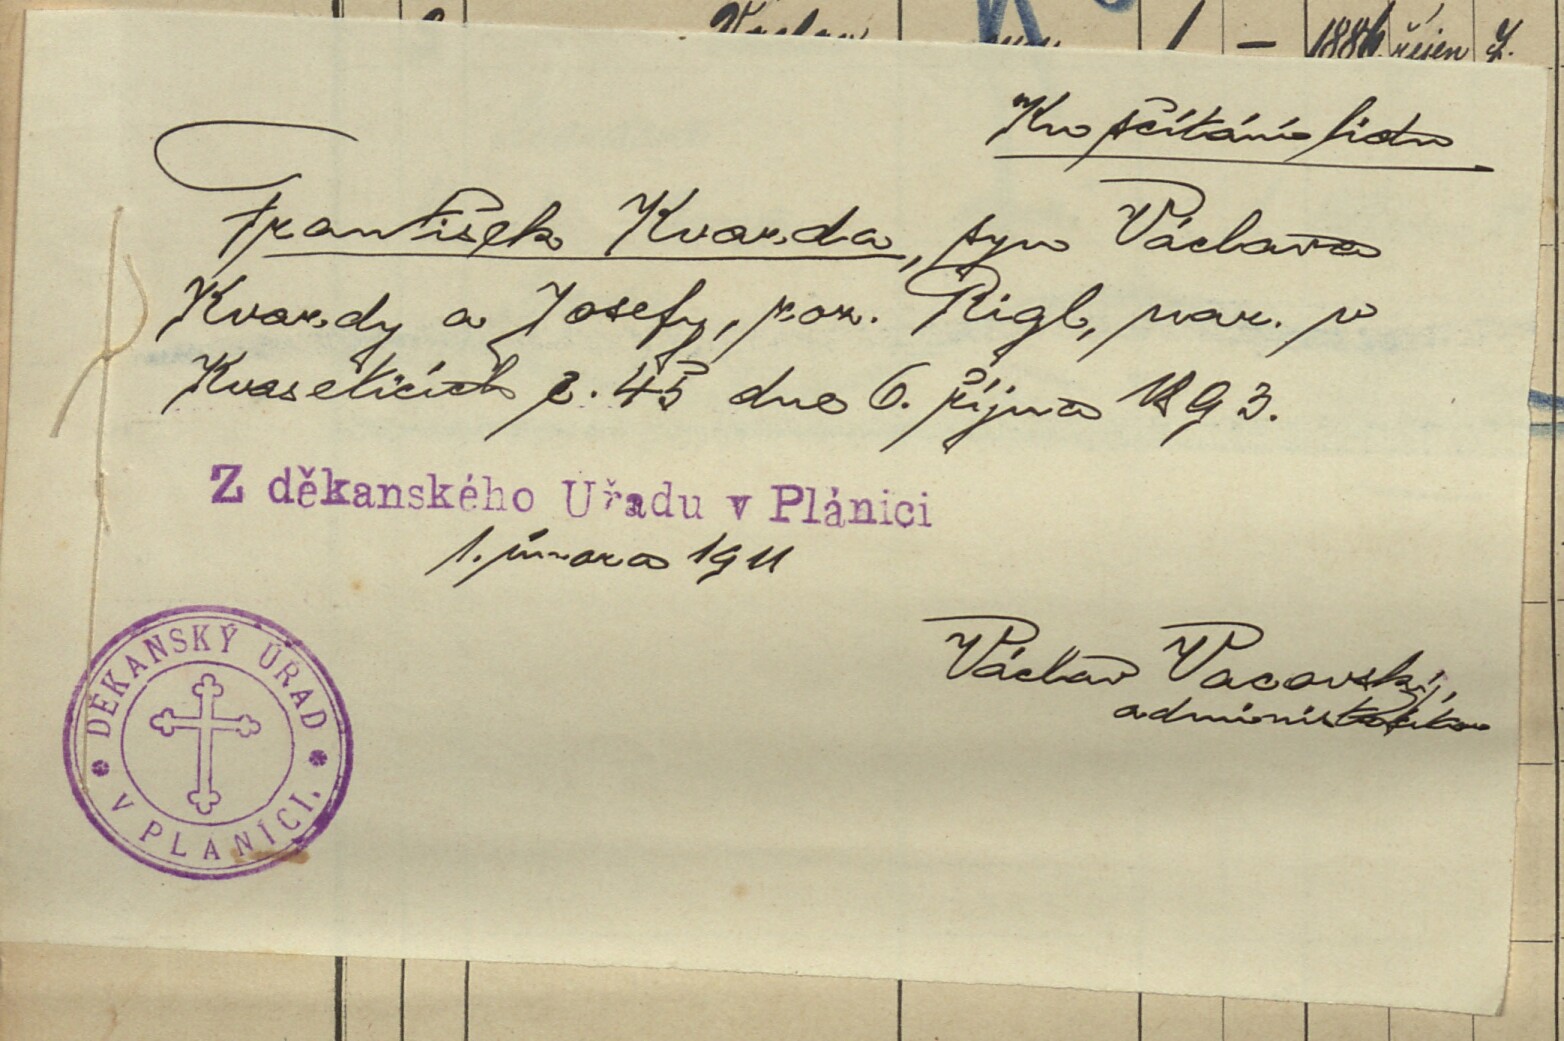 Václav 1 — 1880 říjen 7.
Ku sčítání lidu
František Kvarda, syn Václava
Kvardy a Josefy, roz. Rigl, nar. v
Kvaseticích č. 45 dne 6. října 1893.
Z děkanského Uřadu v Plánici
1. února 1911
Václav Vacovský,
administrátor
DĚKANSKÝ ÚŘAD
V PLÁNICI.